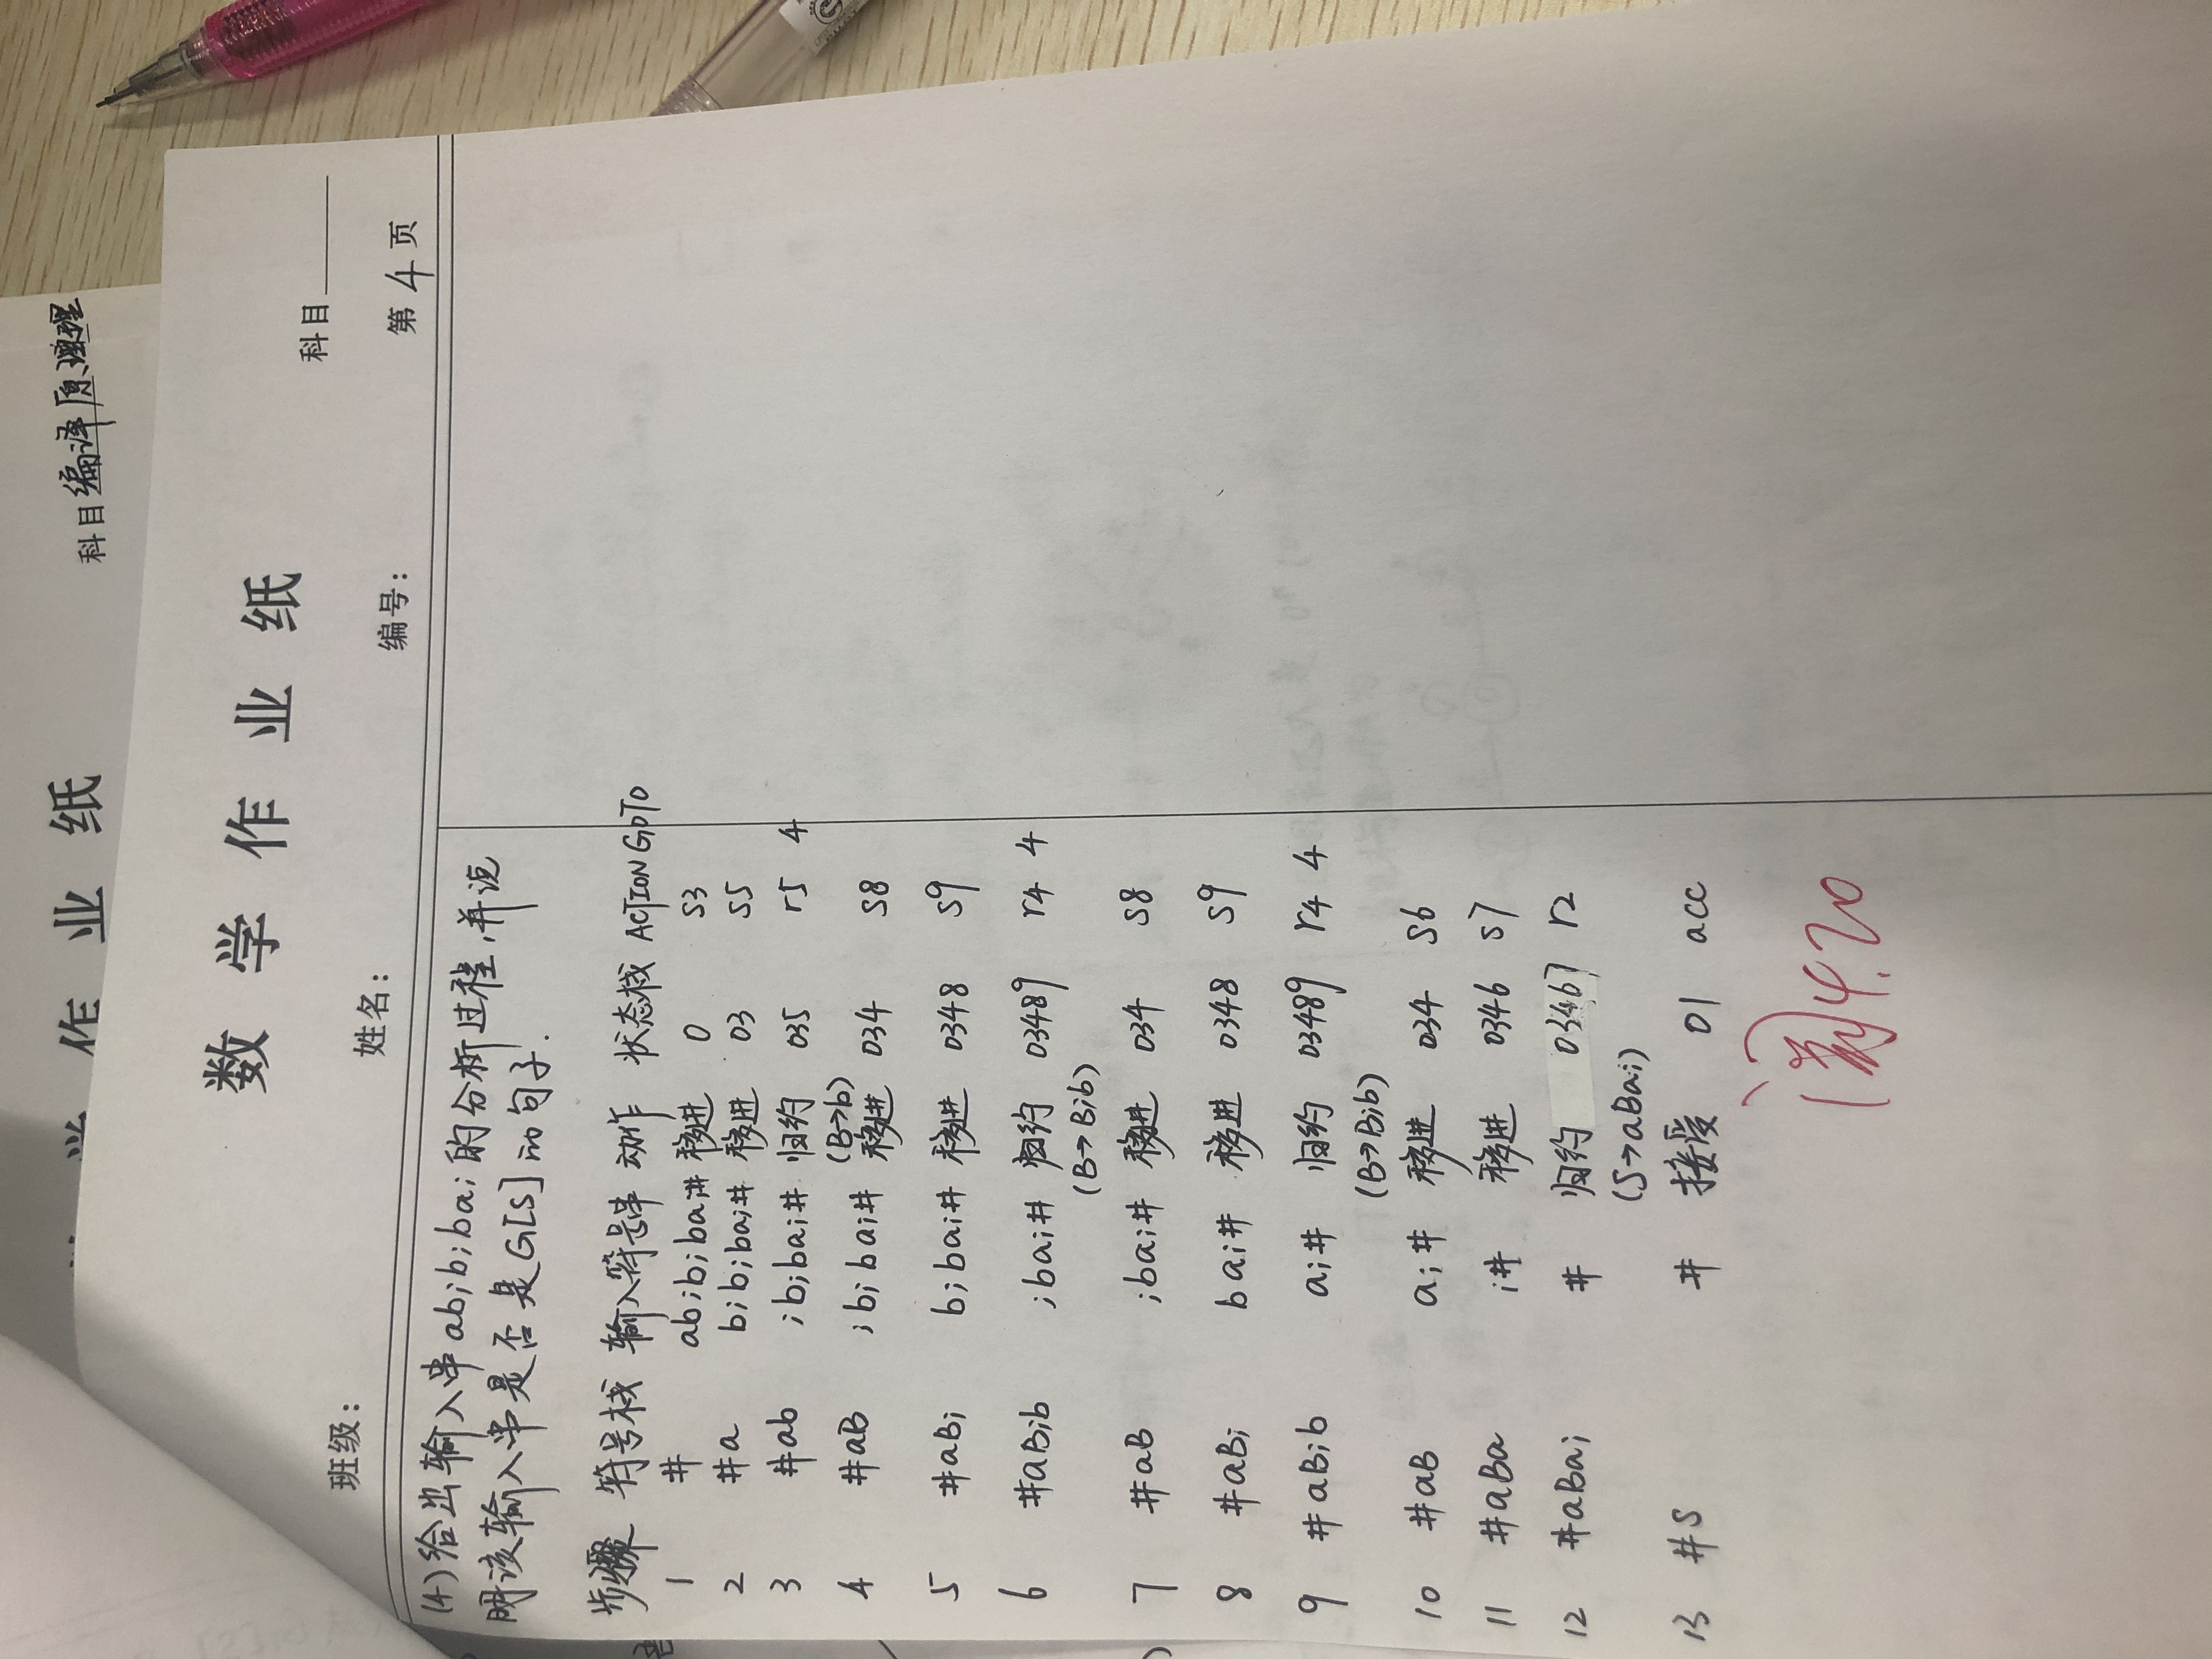 学 作 业 纸
科目 编译原理
数 学 作 业 纸
科目
班级: 姓名: 编号: 第 4 页
(4)给出输入串ab;b;ba;的分析过程,并说
明该输入串是否是G[S]的句子.
步骤 符号栈 输入符号串 动作 状态栈 ACTION GOTO
1 # ab;b;ba;# 移进 0 S3
2 #a b;b;ba;# 移进 03 S5
3 #ab ;b;ba;# 归约 035 r5 4
(B→b)
4 #aB ;b;ba;# 移进 034 S8
5 #aB; b;ba;# 移进 0348 S9
6 #aB;b ;ba;# 归约 03489 r4 4
(B→B;b)
7 #aB ;ba;# 移进 034 S8
8 #aB; ba;# 移进 0348 S9
9 #aB;b a;# 归约 03489 r4 4
(B→B;b)
10 #aB a;# 移进 034 S6
11 #aBa ;# 移进 0346 S7
12 #aBa; # 归约 03467 r2
(S→aBa;)
13 #S # 接受 01 acc
阅4.20